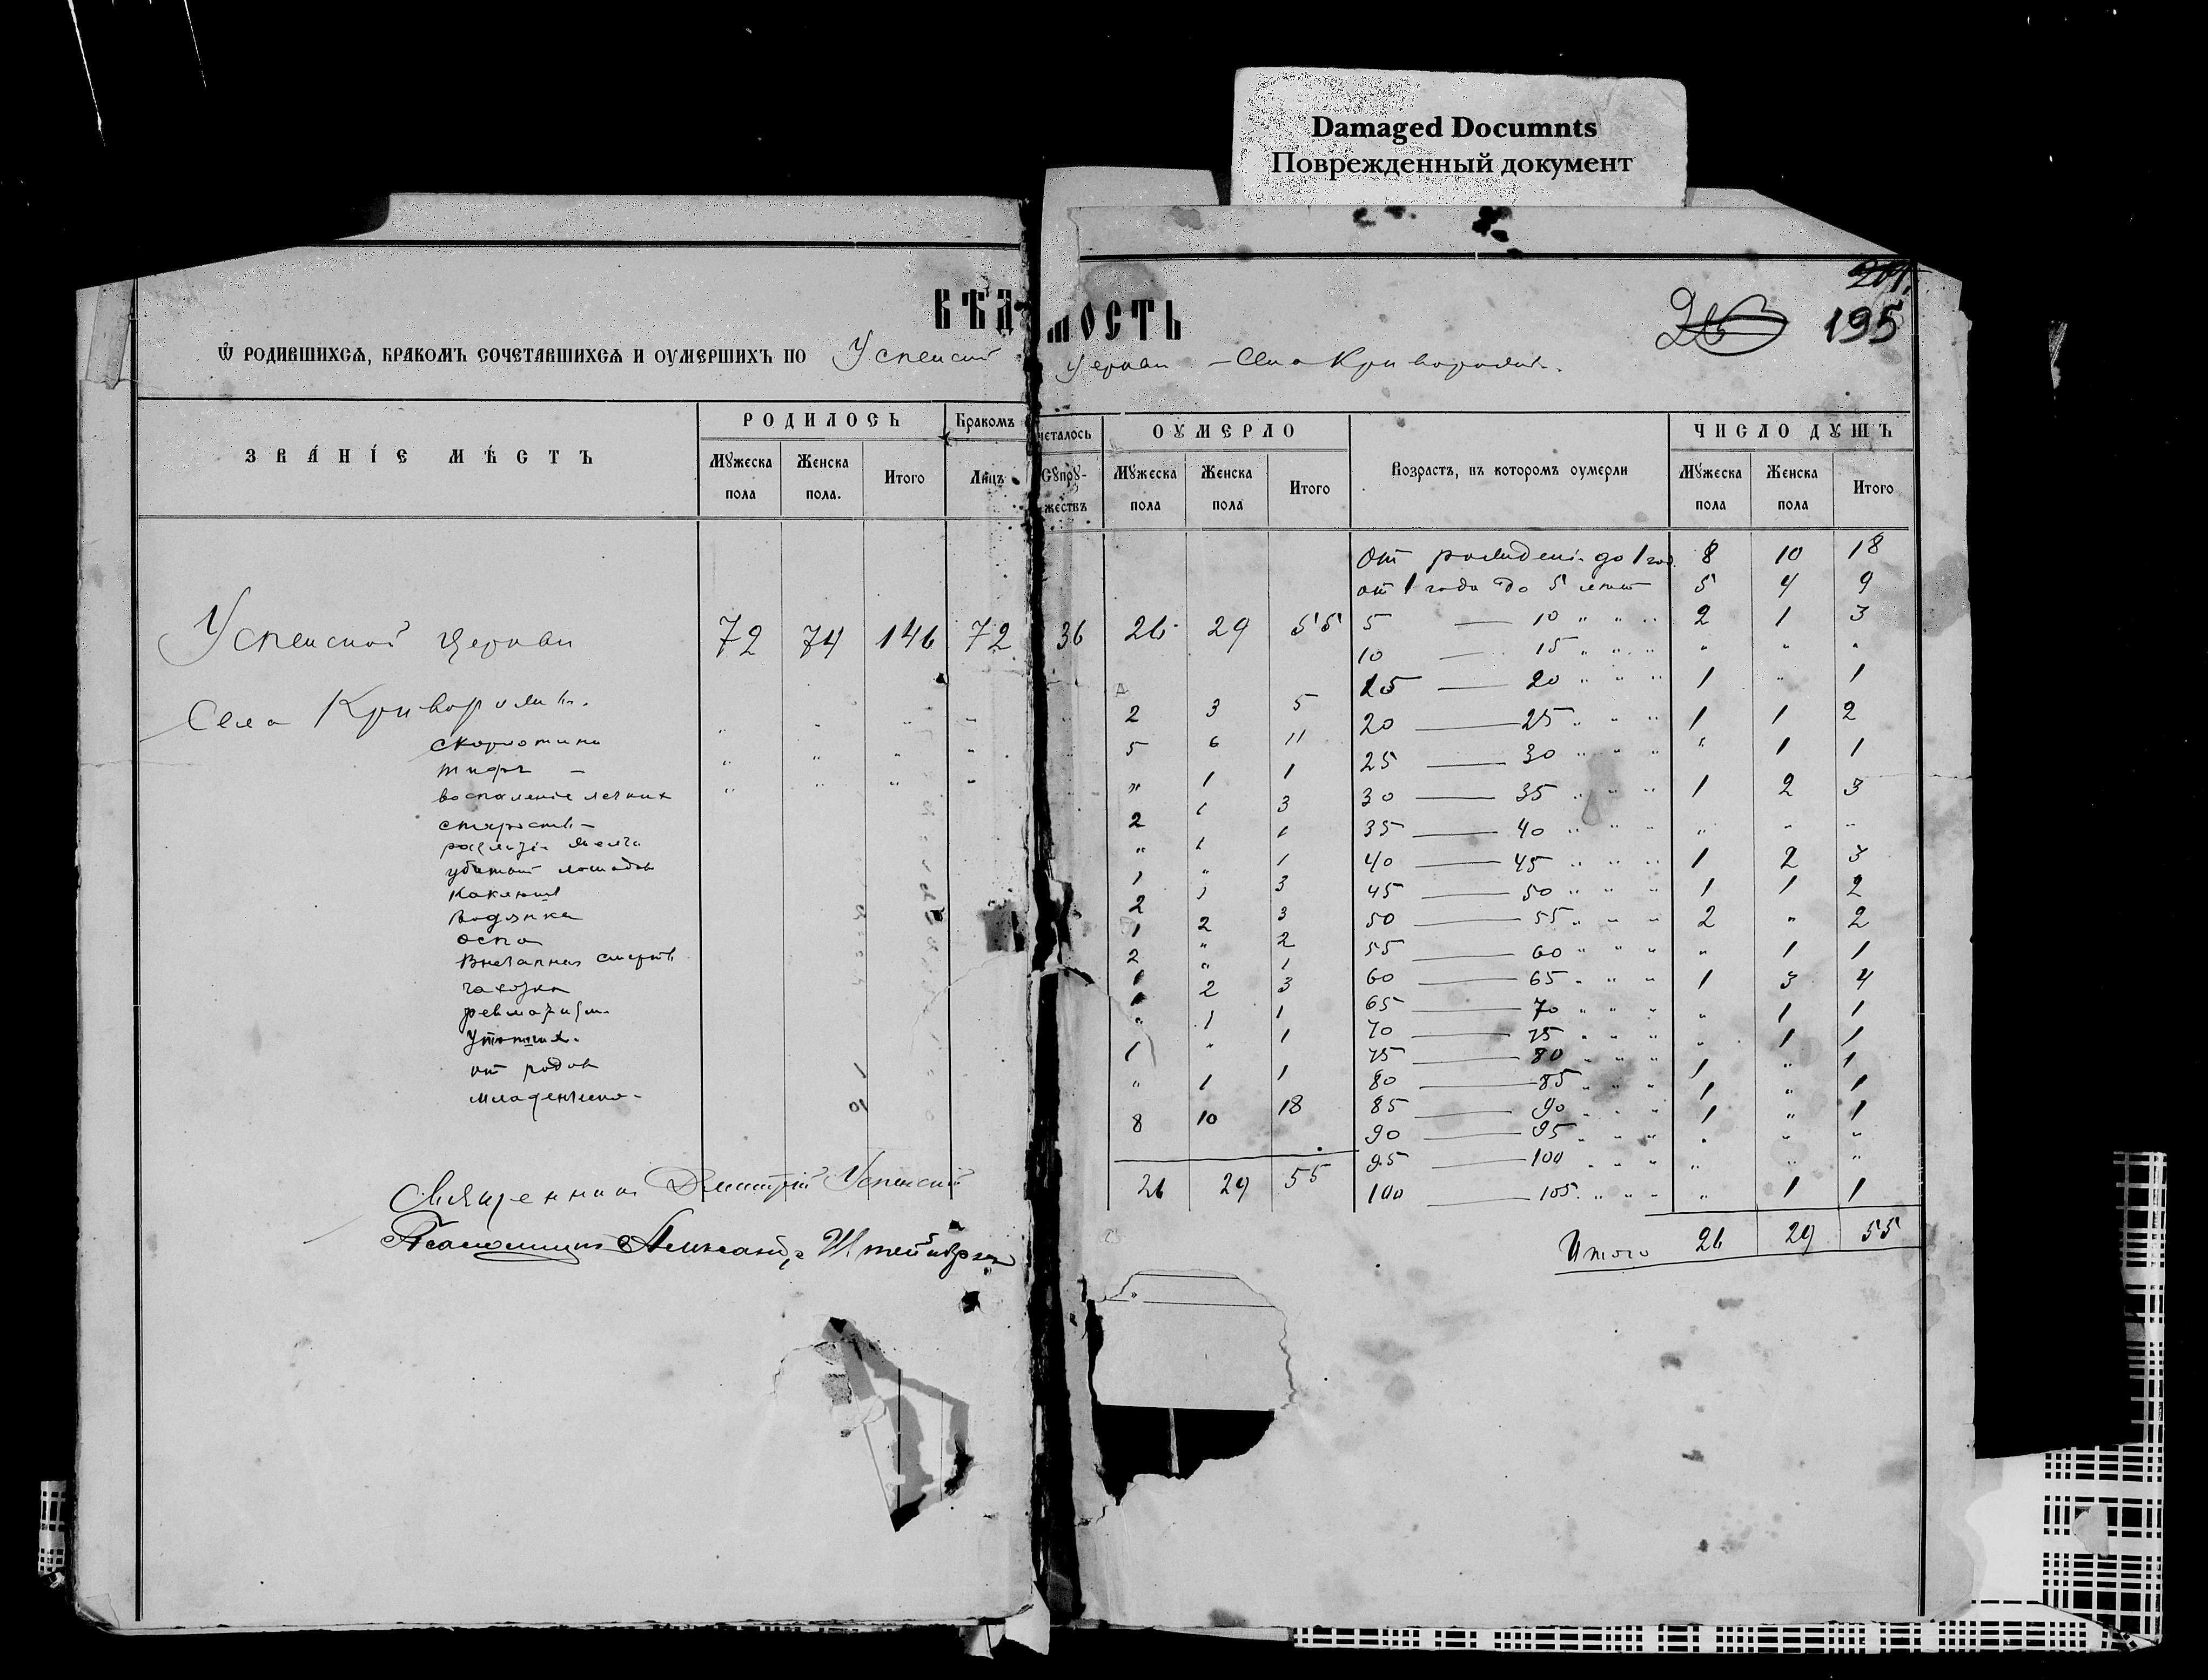 Damaged Documnts
Поврежденный документ
204.
195
ВѢДОМОСТЬ
Ѿ РОДИВШИХСѦ, БРАКОМЪ СОЧЕТАВШИХСѦ И ОУМЕРШИХЪ ПО Успенской Церкви
ЗВА́НІЕ МѢСТЪ РОДИЛОСЬ Бракомъ сочеталось ОУМЕРЛО Возрастъ, въ которомъ оумерли ЧИСЛО ДꙊШЪ
Мꙋжеска пола Женска пола. Итого Лицъ Сꙋпрꙋ-жествъ Мꙋжеска пола Женска пола Итого Мꙋжеска пола Женска пола Итого
Успенской Церкви 72 74 146 72 36 26 29 55
Села
скарлатина " " " " 2 3 5
тифъ – " " " " 5 6 11
воспаление легких " " " " " 1 1
старость – 2 1 3
" 1 1
убитый лошадью 1 " 1
2 1 3
Водянка 1 2 3
оспа 2 " 2
Внезапная смерть 1 " 1
чахотка 1 2 3
ревматизм " 1 1
1 " 1
от родов " 1 1
8 10 18
26 29 55
От рождения до 1 год. 8 10 18
от 1 года до 5 лет 5 4 9
5 — 10 " " " 2 1 3
10 — 15 " " " " " "
15 — 20 " " " 1 " 1
20 — 25 " " " 1 1 2
25 — 30 " " " " 1 1
30 — 35 " " " 1 2 3
35 — 40 " " " " " "
40 — 45 " " " 1 2 3
45 — 50 " " " 1 1 2
50 — 55 " " " 2 " 2
55 — 60 " " " " 1 1
60 — 65 " " " 1 3 4
65 — 70 " " " " 1 1
70 — 75 " " " " 1 1
75 — 80 " " " 1 " 1
80 — 85 " " " 1 " 1
85 — 90 " " " 1 " 1
90 — 95 " " " " " "
95 — 100 " " " " " "
100 — 105 " " " " 1 1
Итого 26 29 55
Священник Димитрий Успенский
Псаломщик Александр